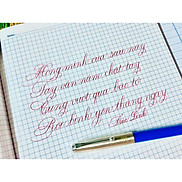 Mong mình của sau này
Tay vẫn nắm chặt tay
Cùng vượt qua bác tố
Rồi bình yên tháng ngày